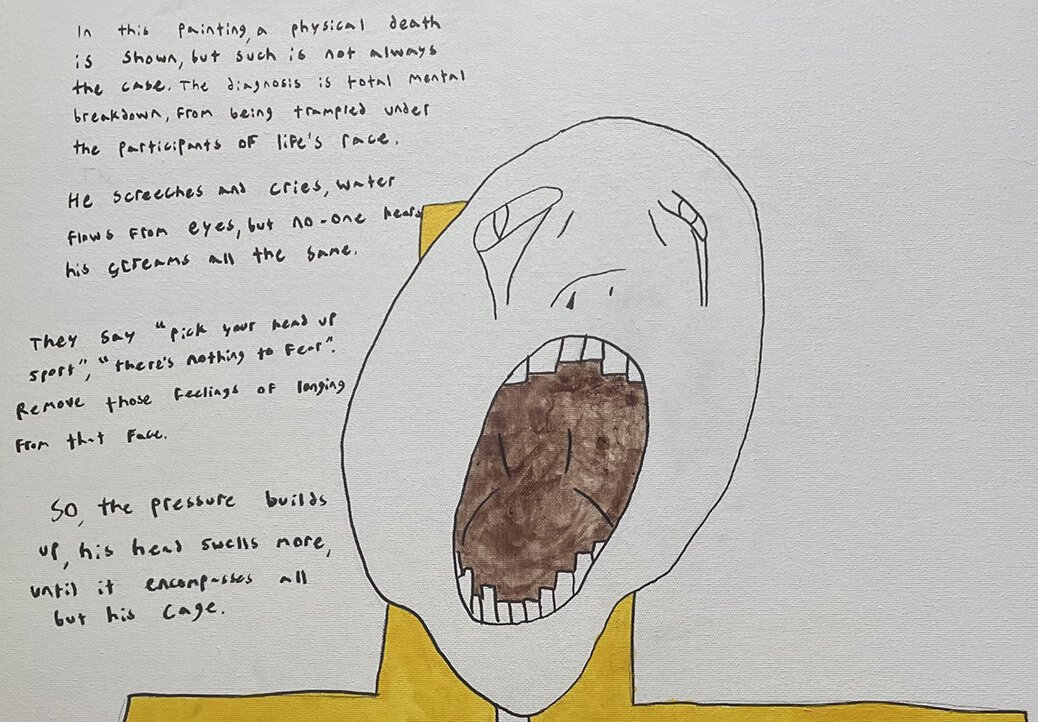 In this painting, a physical death
is shown, but such is not always
the case. The diagnosis is total mental
breakdown, from being trampled under
the participants of life's race.
He screeches and cries, water
flows from eyes, but no-one hears
his screams all the same.
They say "pick your head up
sport", "there's nothing to fear".
Remove those feelings of longing
from that face.
So, the pressure builds
up, his head swells more,
until it encompasses all
but his cage.